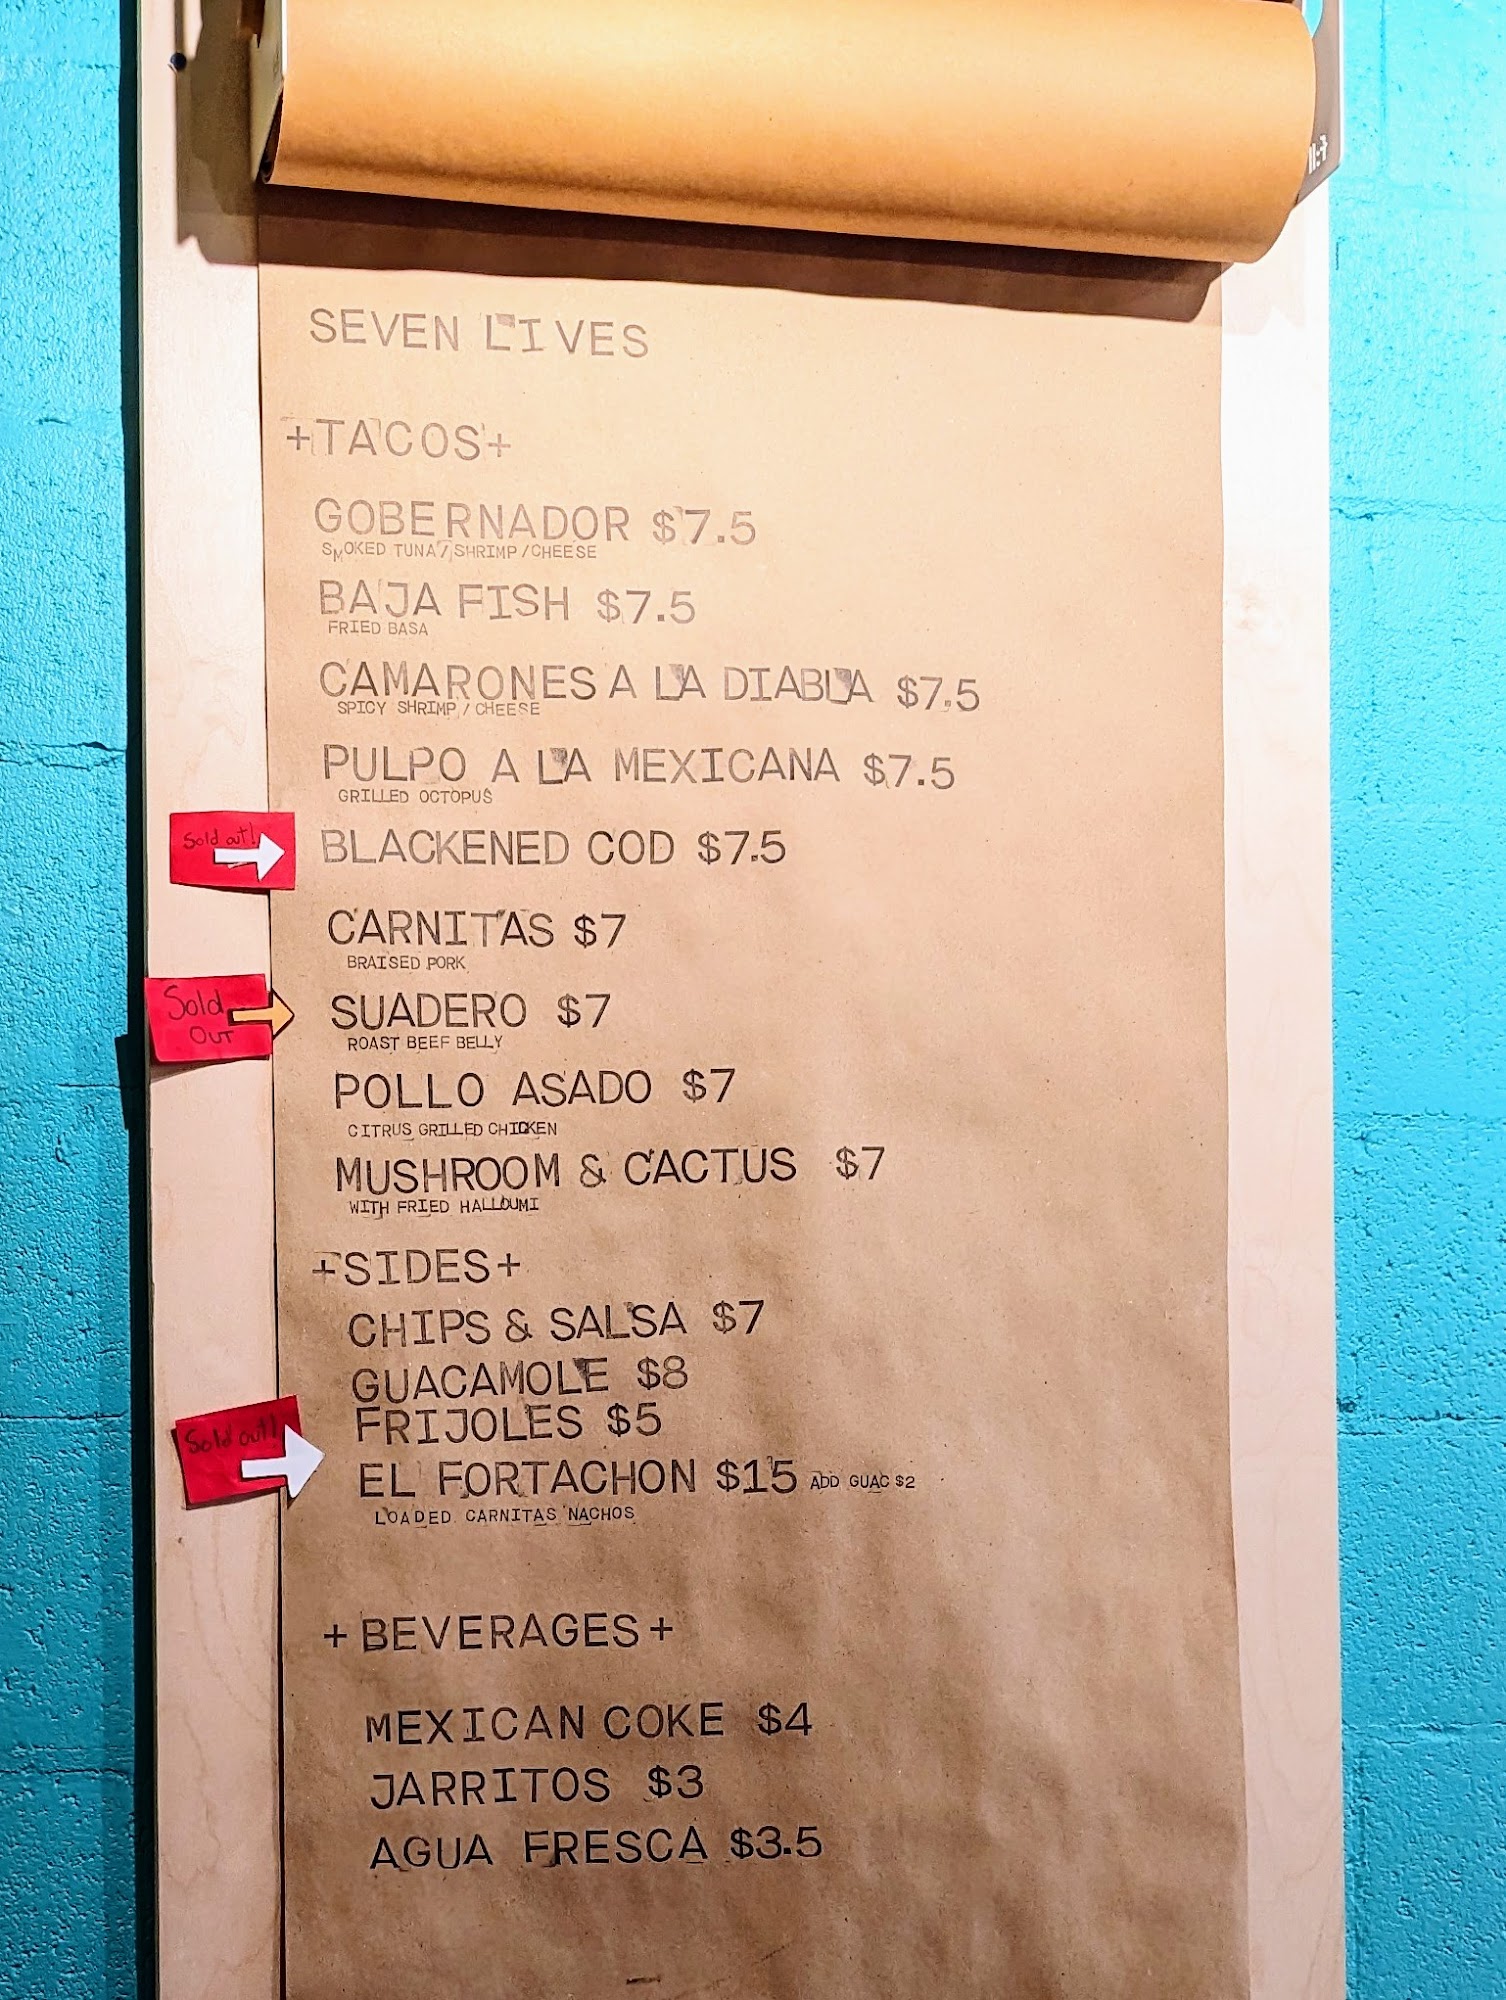 SEVEN LIVES
+TACOS+
GOBERNADOR $7.5
SMOKED TUNA/SHRIMP/CHEESE
BAJA FISH $7.5
FRIED BASA
CAMARONES A LA DIABLA $7.5
SPICY SHRIMP/CHEESE
PULPO A LA MEXICANA $7.5
GRILLED OCTOPUS
Sold out!
BLACKENED COD $7.5
CARNITAS $7
BRAISED PORK
Sold
OUT
SUADERO $7
ROAST BEEF BELLY
POLLO ASADO $7
CITRUS GRILLED CHICKEN
MUSHROOM & CACTUS $7
WITH FRIED HALLOUMI
+SIDES+
CHIPS & SALSA $7
GUACAMOLE $8
FRIJOLES $5
Sold out!
EL FORTACHON $15 ADD GUAC $2
LOADED CARNITAS NACHOS
+BEVERAGES+
MEXICAN COKE $4
JARRITOS $3
AGUA FRESCA $3.5